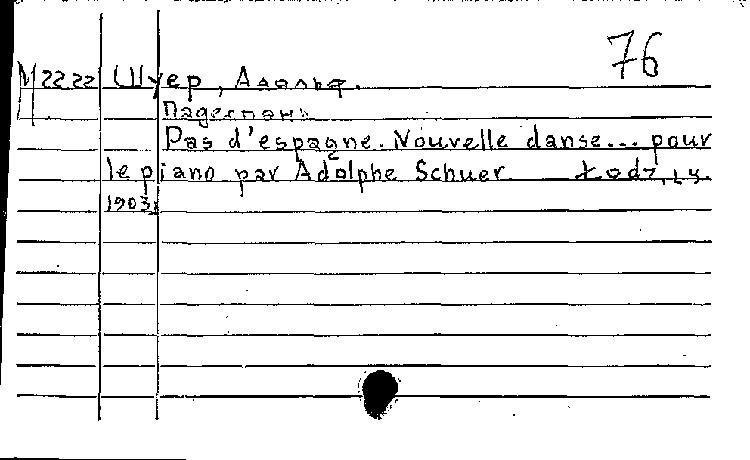 76
М 22 22 Шуер, Адольф.
Падеспань
Pas d'espagne. Nouvelle danse... pour
le piano par Adolphe Schuer. Łodz,
1903.